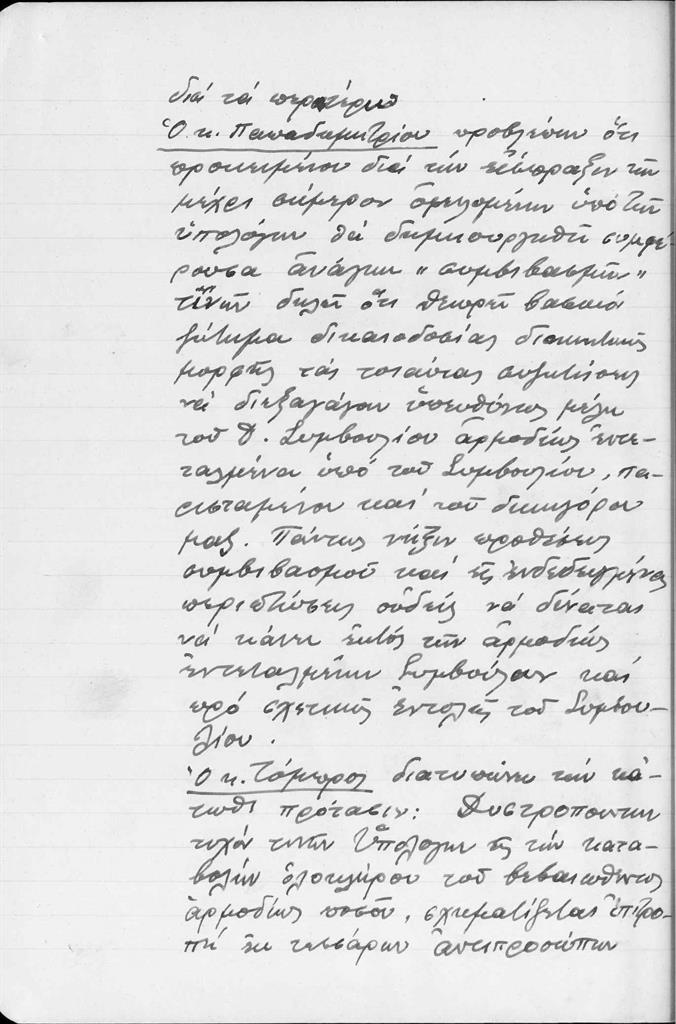 διά τά περαιτέρω
Ὁ κ. Παπαδημητρίου προβλέπων ὅτι
προκειμένου διά τήν εἴσπραξιν τῶν
μέχρι σήμερον ὀφειλομένων ὑπό τῶν
ὑπολόγων θά δημιουργηθῇ συμφέ-
ρουσα ἀνάγκη "συμβιβασμῶν"
τινῶν δηλοῖ ὅτι θεωρεῖ βασικό
ζήτημα δικαιοδοσίας διοικητικῆς
μορφῆς τάς τοιαύτας συζητήσεις
νά διεξαγάγουν ὑπευθύνως μέλη
τοῦ Δ. Συμβουλίου ἁρμοδίως ἐντε-
ταλμένα ὑπό τοῦ Συμβουλίου, πα-
ρισταμένου καί τοῦ δικηγόρου
μας. Πάντως νύξιν προθέσεως
συμβιβασμοῦ καί εἰς ἐνδεδειγμένας
περιπτώσεις οὐδείς νά δύναται
νά κάνει ἐκτός τῶν ἁρμοδίως
ἐντεταλμένων Συμβούλων καί
πρό σχετικῆς ἐντολῆς τοῦ Συμβου-
λίου.
Ὁ κ. Τόμπρος διατυπώνει τήν κά-
τωθι πρότασιν: Δυστροπούντων
τυχόν τινῶν Ὑπολόγων εἰς τήν κατα-
βολήν ὁλοκλήρου τοῦ βεβαιωθέντος
ἁρμοδίως ποσοῦ, σχηματίζεται ἐπιτρο-
πή ἐκ τεσσάρων ἀντιπροσώπων